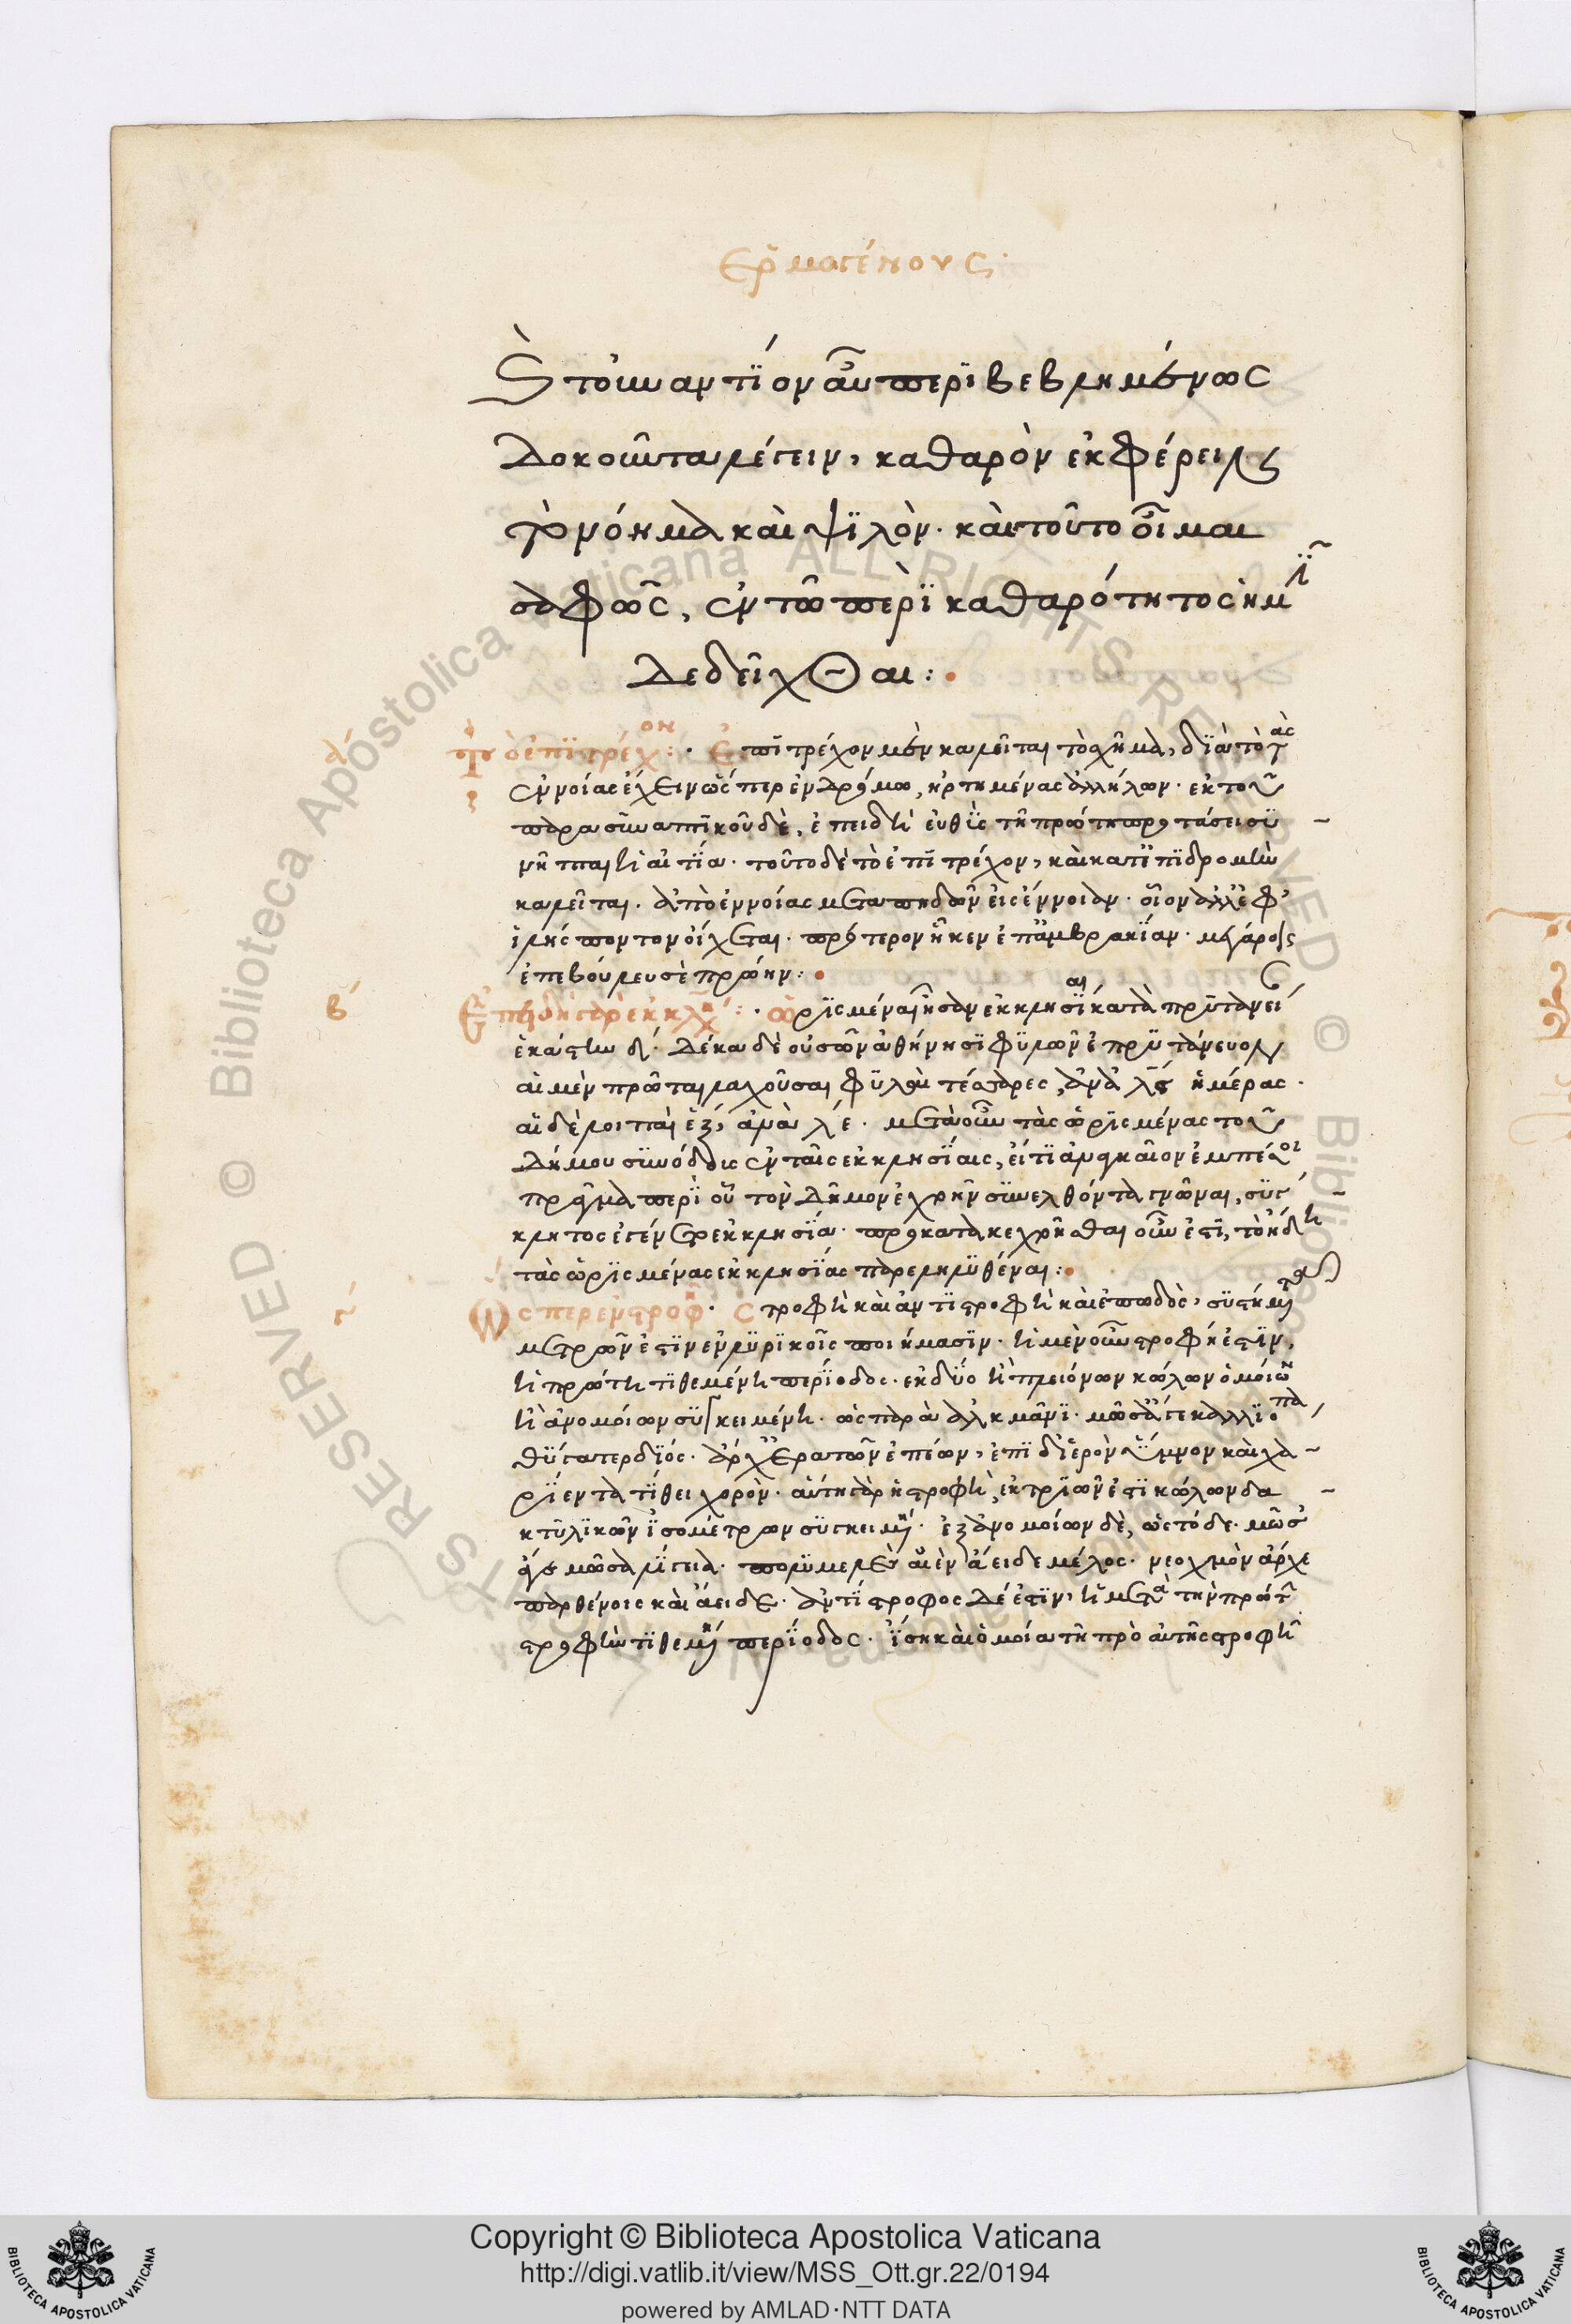 Ἑρμογένους
ἢ τοὐναντίον αὖ περιβεβλημένως
δοκοῦντα λέγειν, καθαρὸν ἐκφέρειν
τὸ νόημα καὶ ψιλόν. καὶ τοῦτο οἶμαι
σαφῶς, ἐν τῷ περὶ καθαρότητος ἡμῖν
δεδεῖχθαι:
α τὸ ἐπιτρέχον: Ἐπιτρέχον μὲν καλεῖται τὸ σχῆμα, διὰ τὸ τὰς
ἐννοίας ἔχειν ὥσπερ ἐν δρόμῳ, ἠρτημένας ἀλλήλων. ἐκ τοῦ
παρασυναπτικοῦ δὲ, ἐπειδὴ εὐθὺς τῇ πρώτῃ προτάσει συ
νῆπται ἡ αἰτία. τοῦτο δὲ τὸ ἐπιτρέχον, καὶ κατ' ἐπιδρομὴν
καλεῖται. ἀπὸ ἐννοίας μεταπηδῶν εἰς ἔννοιαν. οἷον ἀλλ' ἐφ'
ἑλλήσποντον οἴχεται. πρότερον ἧκεν ἐπ' ἀμβρακίαν. μεγάροις
ἐπεβούλευσε πρώην:
β Ἐπειδὴ γὰρ ἐκκλη: ὡρισμέναι ἦσαν ἐκκλησίαι κατὰ πρυτανεί
ἑκάστην δ. δέκα δὲ οὐσῶν ἀθήνησι φυλῶν ἐπρυτάνευον
αἱ μὲν πρῶται λαχοῦσαι φυλαὶ τέσσαρες, ἀνὰ λϛ ἡμέρας.
αἱ δὲ λοιπαὶ ἓξ, ἀνὰ λε. μετὰ οὖν τὰς ὡρισμένας τοῦ
δήμου συνόδους ἐν ταῖς ἐκκλησίαις, εἴ τι ἀναγκαῖον ἐμπέσοι
πρᾶγμα περὶ οὗ τὸν δῆμον ἐχρῆν συνελθόντα γνῶναι, σύγ
κλητος ἐγένετο ἐκκλησία. προκατακεχρῆσθαι οὖν ἐστι, τὸ ἤδη
τὰς ὡρισμένας ἐκκλησίας παρεληλυθέναι:
γ Ὥσπερ ἐν στροφῇ. Στροφὴ καὶ ἀντιστροφὴ καὶ ἐπωδὸς, συστήματα
μέτρων ἐστὶν ἐν λυρικοῖς ποιήμασιν. ἡ μὲν οὖν στροφή ἐστιν,
ἡ πρώτη τιθεμένη περίοδος. ἐκ δύο ἢ πλειόνων κώλων ὁμοίων
ἢ ἀνομοίων συγκειμένη. ὡς παρὰ ἀλκμᾶνι. μῶσ' ἄγε καλλιόπα
θύγατερ διός. ἄρχ' ἐρατῶν ἐπέων, ἐπὶ δ' ἱερὸν ὕμνον καὶ χα
ρίεντα τίθει χορόν. αὕτη γὰρ ἡ στροφὴ, ἐκ τριῶν ἐστι κώλων δα
κτυλικῶν ἰσομέτρων συγκειμένη. ἐξ ἀνομοίων δὲ, ὡς τόδε. μῶσ'
ἄγε μῶσα λίγεια. πολυμελὲς αἰὲν ἄειδε μέλος. νεοχμὸν ἄρχε
παρθένοις καὶ ἄειδε. ἀντίστροφος δέ ἐστιν, ἡ μετὰ τὴν πρώτην
στροφὴν τιθεμένη περίοδος. ἴση καὶ ὁμοία τῇ πρὸ αὐτῆς στροφῇ
Copyright © Biblioteca Apostolica Vaticana
http://digi.vatlib.it/view/MSS_Ott.gr.22/0194
powered by AMLAD·NTT DATA